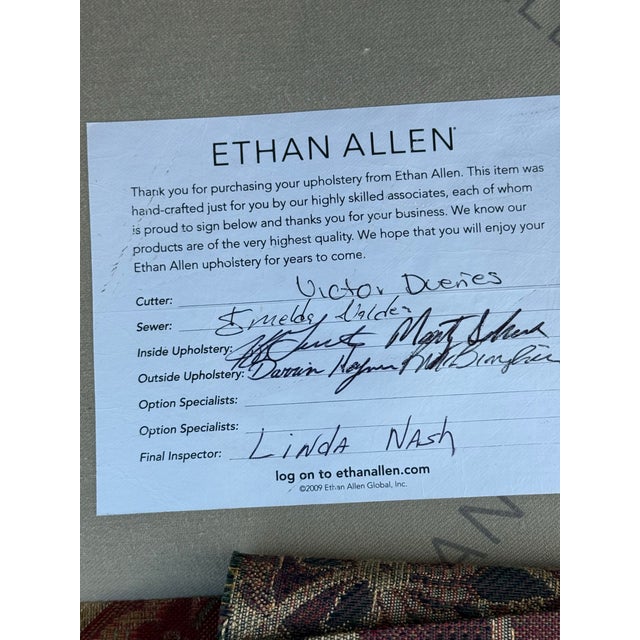 ETHAN ALLEN®
Thank you for purchasing your upholstery from Ethan Allen. This item was
hand-crafted just for you by our highly skilled associates, each of whom
is proud to sign below and thanks you for your business. We know our
products are of the very highest quality. We hope that you will enjoy your
Ethan Allen upholstery for years to come.
Cutter: Victor Dueñes
Sewer: Imelda Valdez
Inside Upholstery:
Outside Upholstery: Darrin
Option Specialists:
Option Specialists:
Final Inspector: LINDA NASH
log on to ethanallen.com
©2009 Ethan Allen Global, Inc.
AN